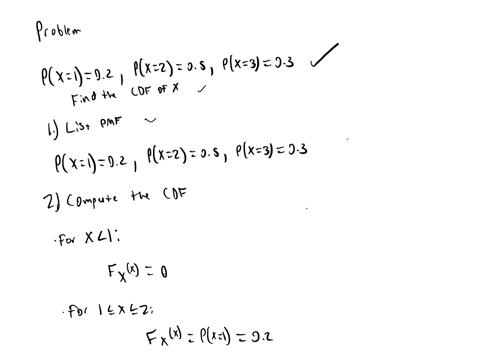 Problem
P(X=1)=0.2, P(X=2)=0.5, P(X=3)=0.3 ✓
Find the CDF of X ✓
1.) List PMF ✓
P(X=1)=0.2, P(X=2)=0.5, P(X=3)=0.3
2) Compute the CDF
·For X<1:
F_X(x) = 0
·For 1≤x≤2:
F_X(x) = P(X=1) = 0.2